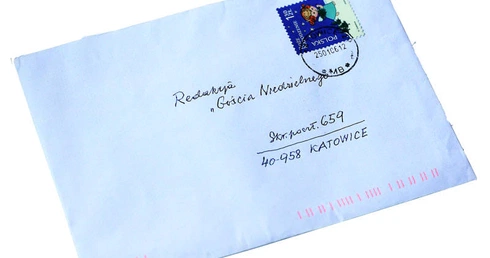 1 ZŁ
POLSKA
250106.12
*1B*
Redakcja
„Gościa Niedzielnego"
Skr. poczt. 659
40-958 KATOWICE